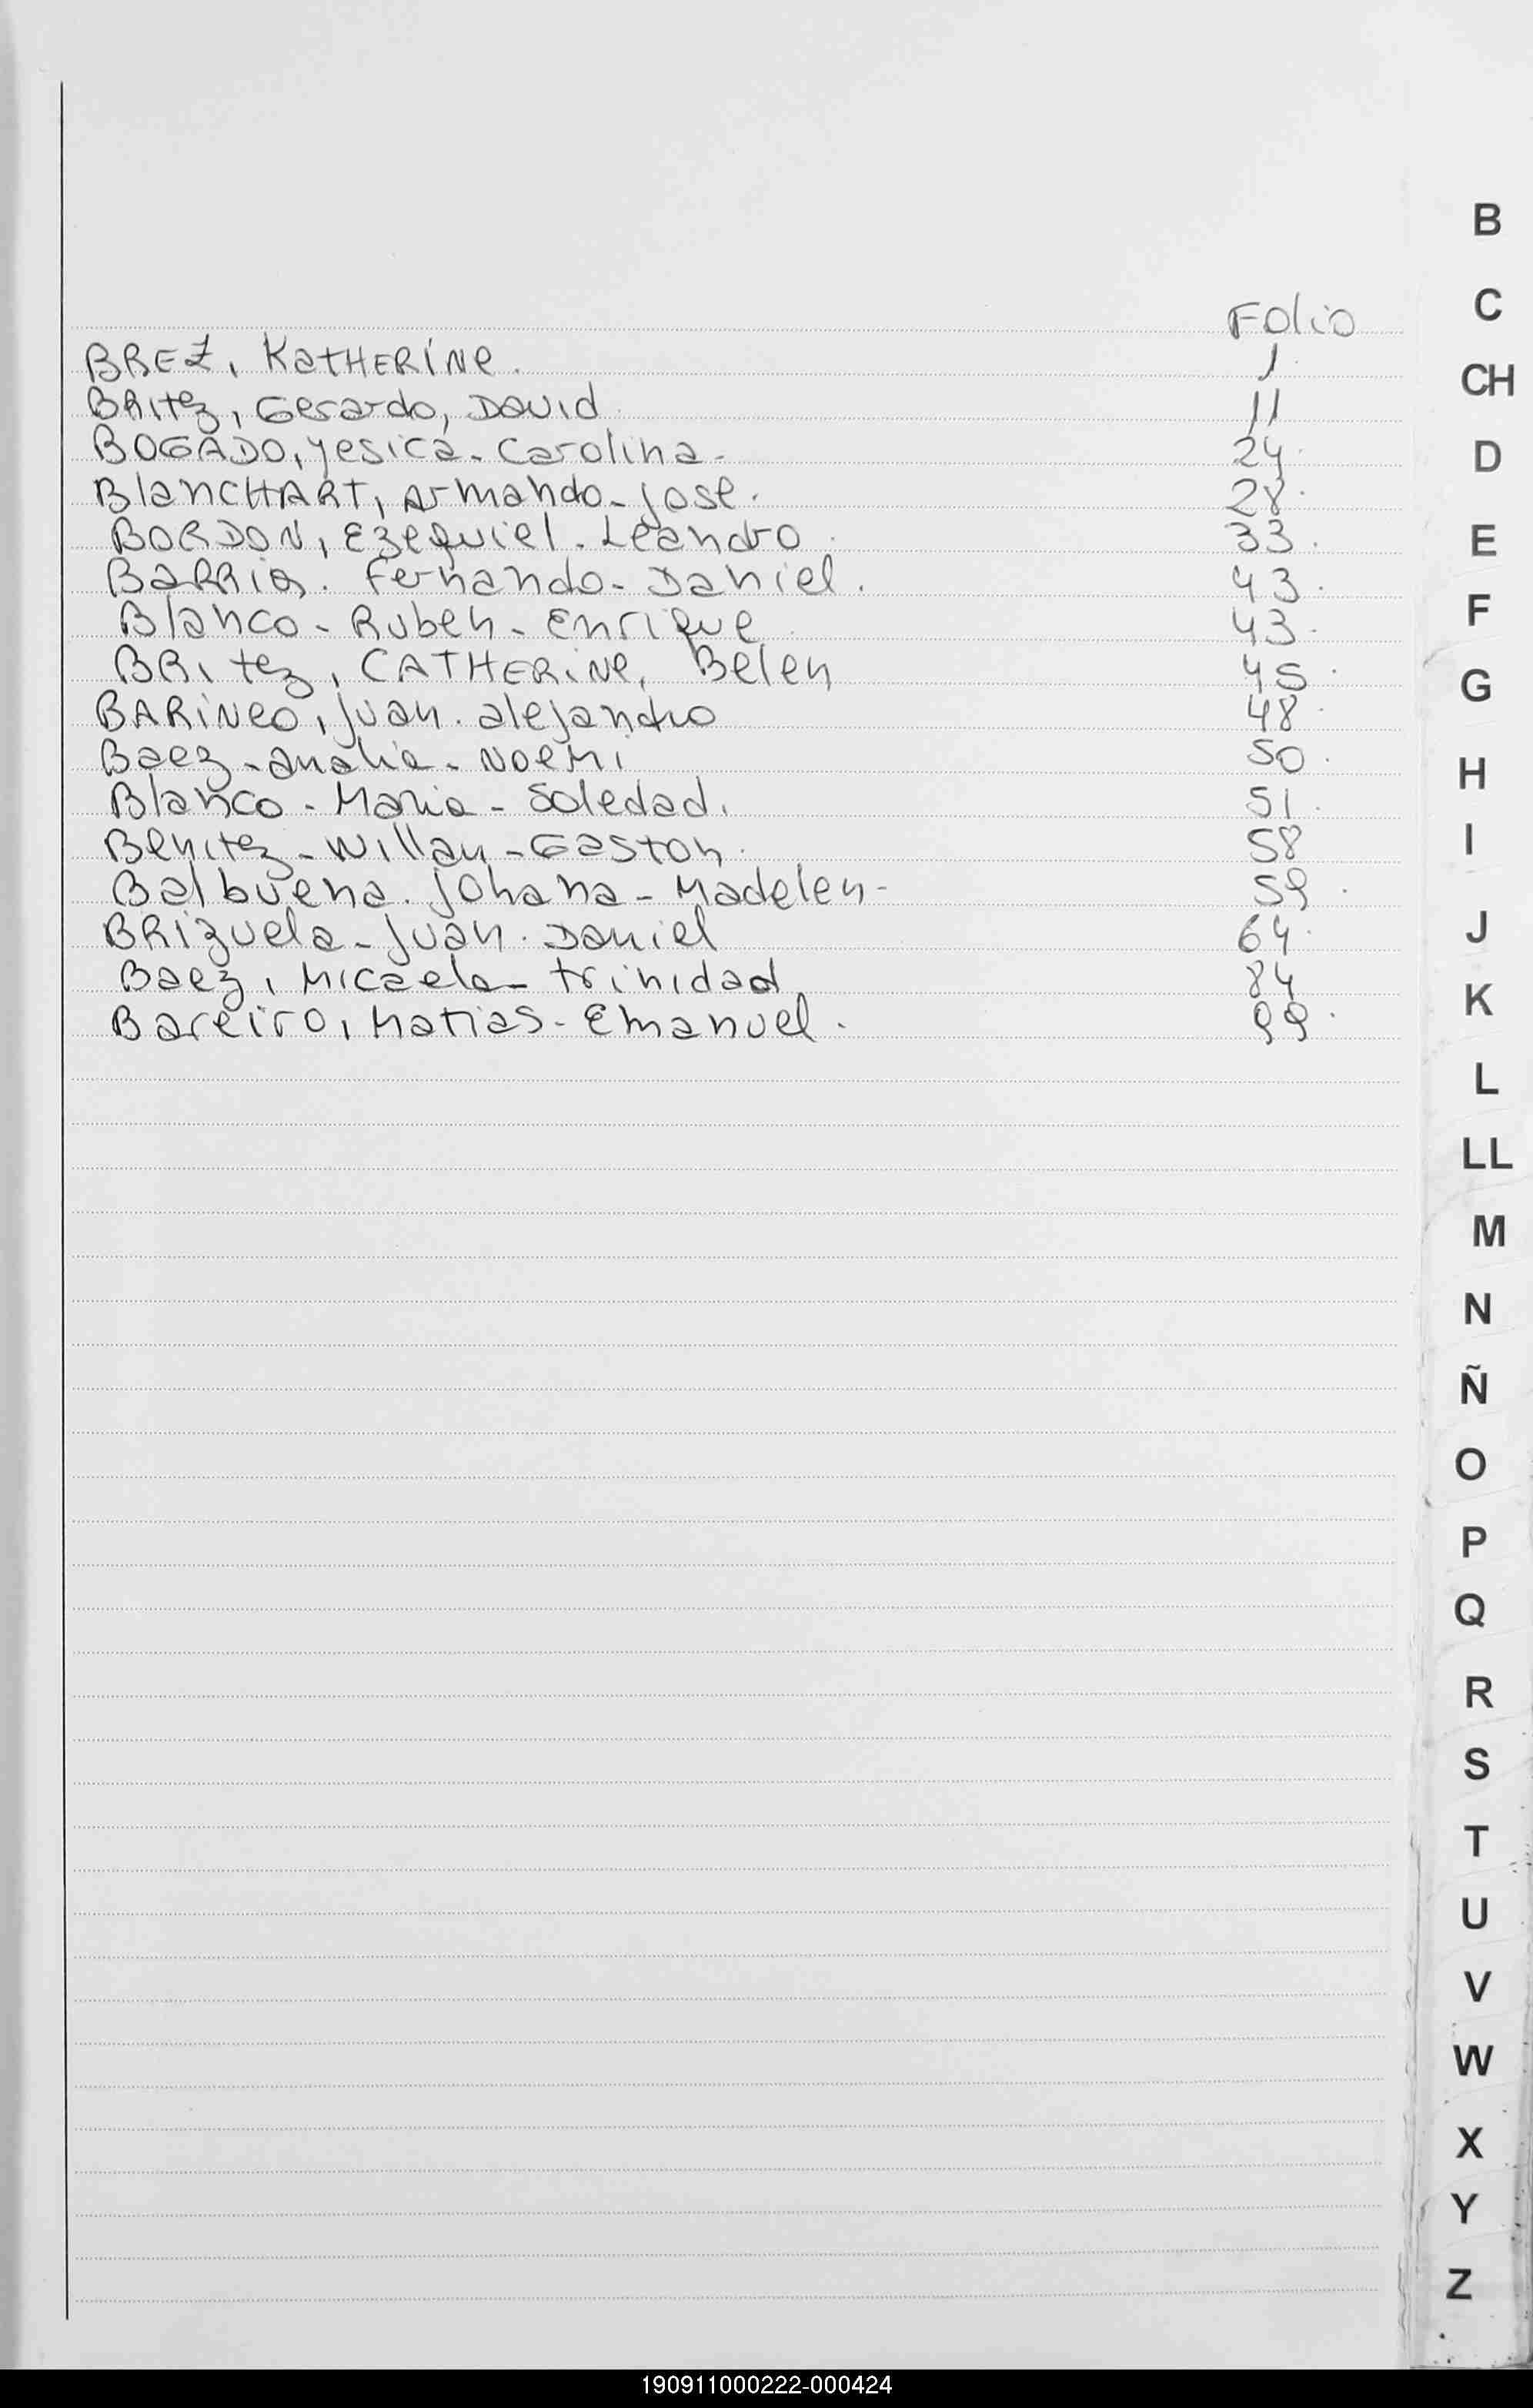 Folio
BREZ, KatHERiNe. 1
BRitez, Gerardo, David 11
BOGADO, Yesica - Carolina - 24
BlanCHART, Armando - Jose. 28
BORDON, Ezequiel - Leandro. 33
Fernando - Daniel. 43
Blanco - Ruben - Enrique 43
BRitez, CATHERiNe, Belen 45
BARiNeo, Juan. alejandro 48
Baez - analia - Noemi 50
Blanco - Maria - Soledad. 51
Benitez - Willan - Gaston. 58
Balbuena. Johana - Madelen - 59
BRizuela - Juan. Daniel 64
Baez, Micaela - trinidad 84
Bareiro, Matias - Emanuel. 99
B
C
CH
D
E
F
G
H
I
J
K
L
LL
M
N
Ñ
O
P
Q
R
S
T
U
V
W
X
Y
Z
190911000222-000424